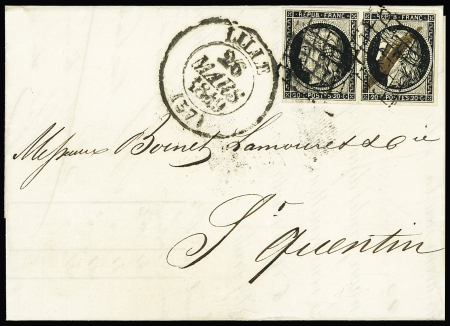 LILLE
26
MARS
1849
(57)
REPUB. FRANC.
20 POSTES 20
REPUB. FRANC.
20 POSTES 20
Messieurs Boinet Lamouret & Cie
St Quentin